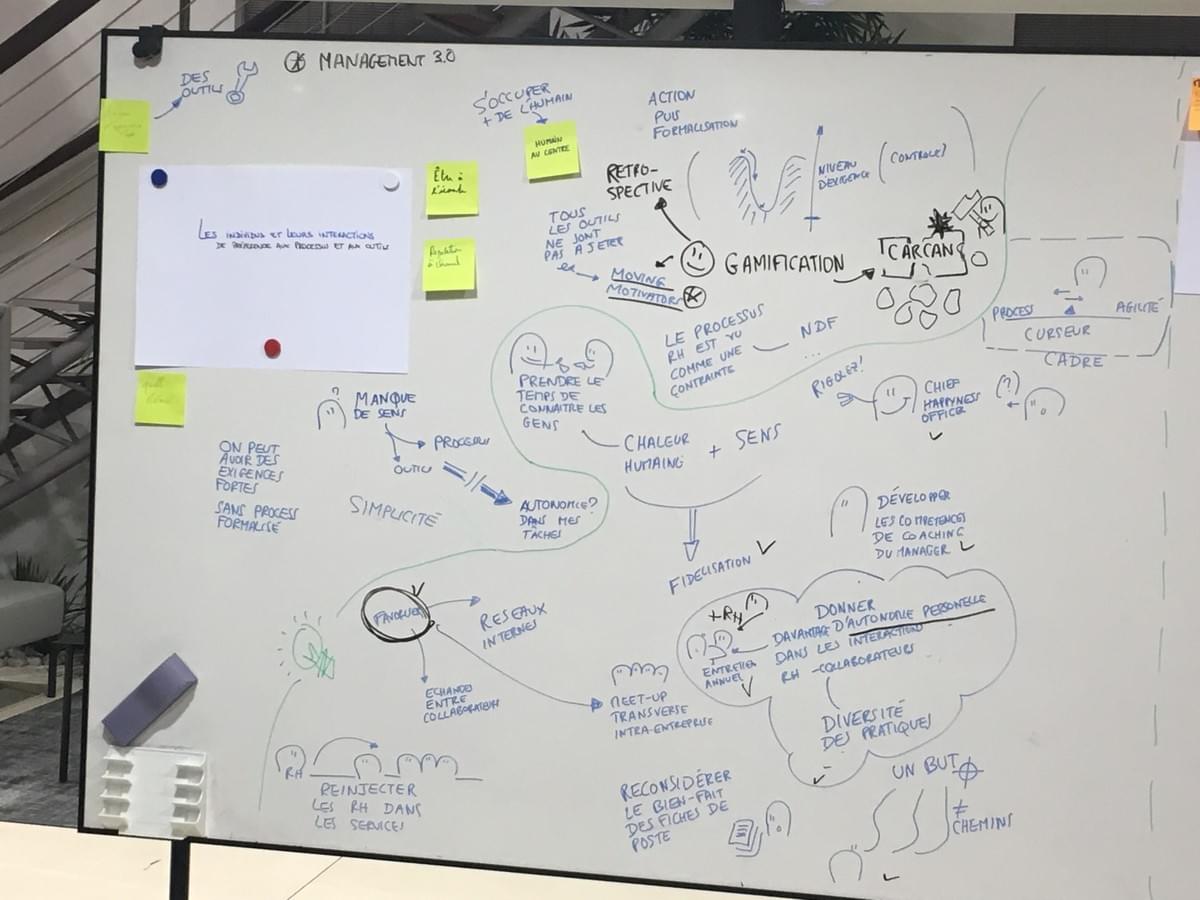 MANAGEMENT 3.0
DES
OUTILS
S'OCCUPER
+ DE L'HUMAIN
HUMAIN
AU CENTRE
ACTION
PUIS
FORMALISATION
NIVEAU
D'EXIGENCE
(CONTROLE)
RETRO-
SPECTIVE
Être à
l'écoute
TOUS
LES OUTILS
NE SONT
PAS A JETER
MOVING
MOTIVATORS
GAMIFICATION
CARCAN
LES INDIVIDUS ET LEURS INTERACTIONS
DE PRÉFÉRENCE AUX PROCESSUS ET AUX OUTILS
PROCESS
AGILITÉ
CURSEUR
CADRE
LE PROCESSUS
RH EST VU
COMME UNE
CONTRAINTE
NDF
...
PRENDRE LE
TEMPS DE
CONNAITRE LES
GENS
RIGOLEZ!
CHIEF
HAPPYNESS
OFFICER
(?)
?
MANQUE
DE SENS
PROCESSUS
OUTILS
CHALEUR
HUMAINE
+ SENS
ON PEUT
AVOIR DES
EXIGENCES
FORTES
SANS PROCESS
FORMALISÉ
SIMPLICITÉ
AUTONOMIE?
DANS MES
TÂCHES
DÉVELOPPER
LES COMPETENCES
DE COACHING
DU MANAGER
FIDELISATION
FAVORISER
RESEAUX
INTERNES
ECHANGES
ENTRE
COLLABORATEURS
MEET-UP
TRANSVERSE
INTRA-ENTREPRISE
+RH
ENTRETIEN
ANNUEL
DONNER
DAVANTAGE D'AUTONOMIE PERSONELLE
DANS LES INTERACTIONS
RH - COLLABORATEURS
DIVERSITÉ
DES PRATIQUES
RH
REINJECTER
LES RH DANS
LES SERVICES
RECONSIDÉRER
LE BIEN-FAIT
DES FICHES DE
POSTE
UN BUT
≠
CHEMINS